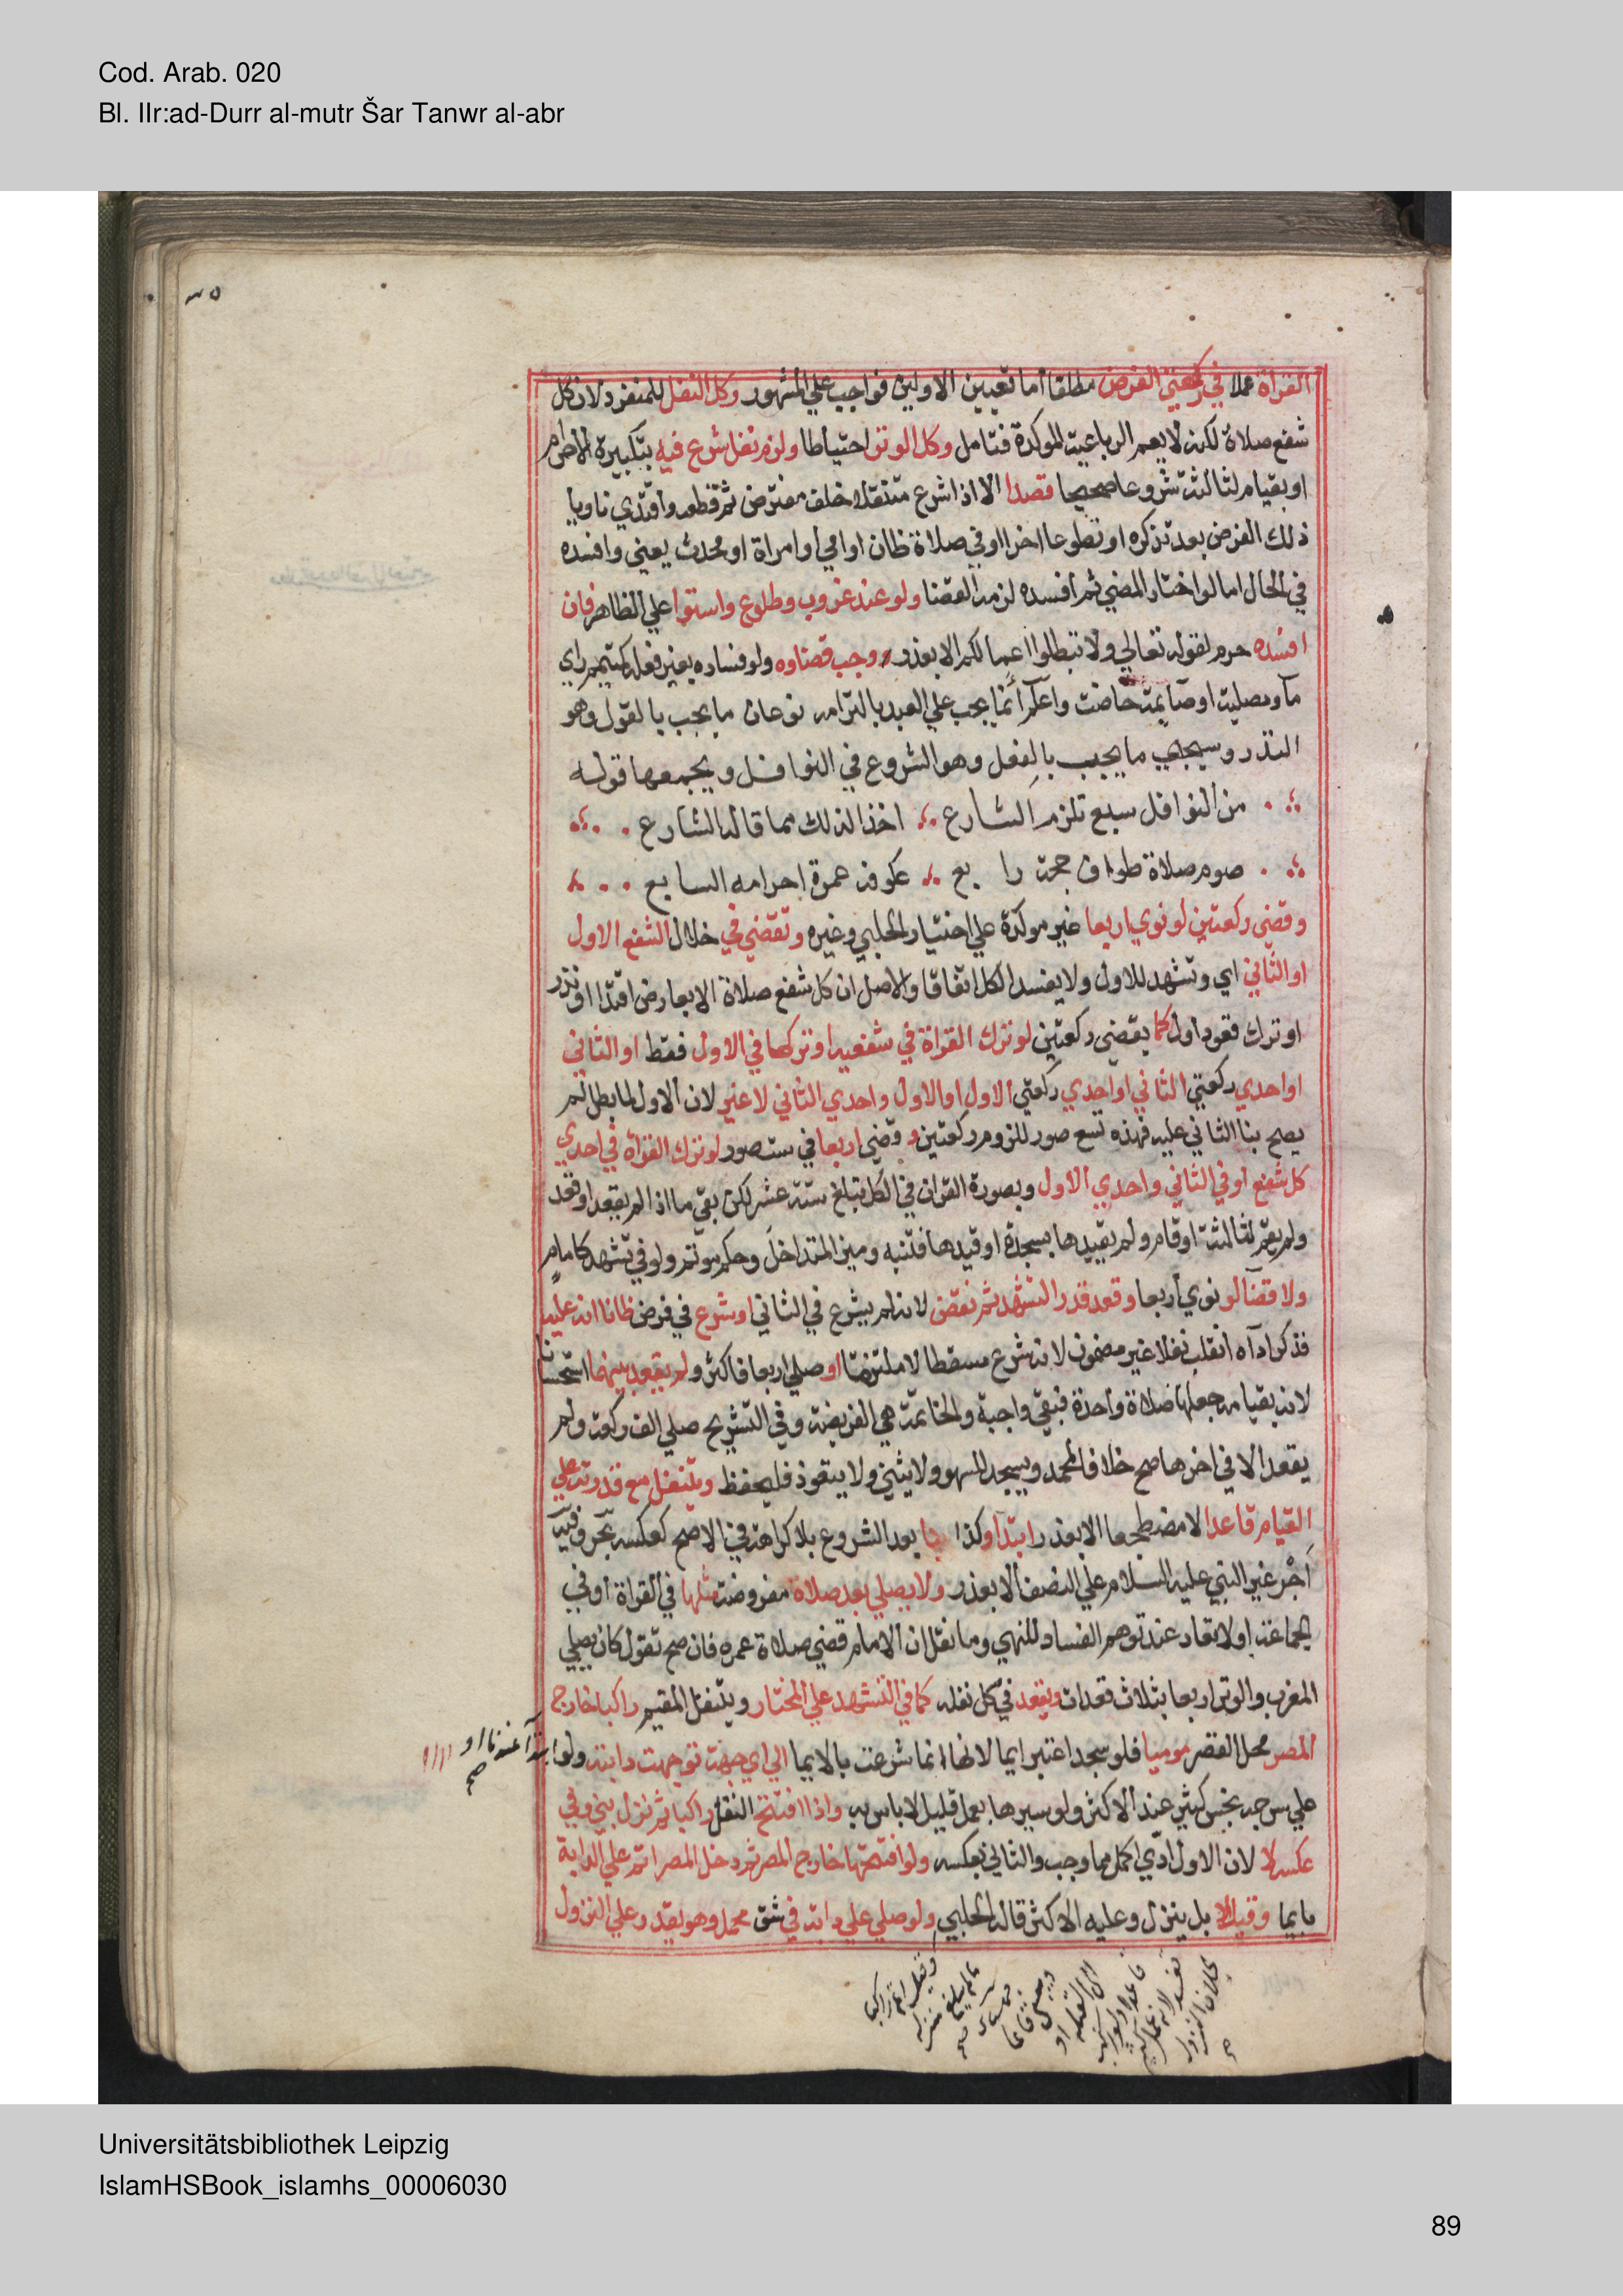 Cod. Arab. 020
Bl. IIr:ad-Durr al-mutr Šar Tanwr al-abr
القراة عملا في ركعتي الفرض مطلقا اما تعيين الاوليين فواجب علي المشهور وكل النفل للمنفرد لان كل
شفع صلاة لكنه لا يعم الرباعية الموكدة فتامل وكل الوتر احتياطا ولزم نفل شرع فيه بتكبيرة الاحرام
او بقيام لثالثة شروعا صحيحا قصدا الا اذا شرع متنفلا خلف مفترض ثم قطعه واقتدي ناويا
ذلك الفرض بعد تذكره او تطوعا اخر او في صلاة ظان او امي او امراة او محدث يعني وافسده
في الحال اما لو اختار المضي ثم افسده لزمه القضا ولو عند غروب وطلوع واستوا علي الظاهر فان
افسده حرم لقوله تعالي ولا تبطلوا اعمالكم الا بعذر ووجب قضاوه ولو فساده بغير فعله كتيمم راي
مآ ومصلية او صايمة حاضت واعلم انما يجب علي العبد بالتزامه نوعان ما يجب بالقول وهو
النذر وسيجي ما يجب بالفعل وهو الشروع في النوافل ويجمعها قوله
من النوافل سبع تلزم الشارع اخذا لذلك مما قاله الشارع
صوم صلاة طواف حجة رابع عكوفه عمرة احرامه السابع
وقضي ركعتين لو نوي اربعا غير موكدة علي اختيار الحلبي وغيره ونقض في خلال الشفع الاول
او الثاني اي وتشهد للاول ولا يفسد الكل اتفاقا والاصل ان كل شفع صلاة الا بعارض اقتدا او نذر
او ترك قعود اول كما يقضي ركعتين لو ترك القراة في شفعيه او تركها في الاول فقط او الثاني
او احدي ركعتي الثاني او احدي ركعتي الاول او الاول واحدي الثاني لا غير لان الاول لما بطل لم
يصح بنا الثاني عليه فهذه تسع صور للزوم ركعتين وقضي اربعا في ست صور لو ترك القراة في احدي
كل شفع او في الثاني واحدي الاول وبصورة القراة في الكل تبلغ ستة عشر لكن بقي ما اذا لم يقعد او قعد
ولم يقم لثالثة او قام ولم يقيدها بسجدة او قيدها فتنبه وميز المتداخل وحكم موتم ولو في تشهد كامام
ولا قضآ لو نوي اربعا وقعد قدر التشهد ثم نقض لانه لم يشرع في الثاني او شرع في فرض ظانا انه عليه
فذكر اداه انقلب نفلا غير مضمون لانه شرع مسقطا لا ملتزما او صلي اربعا فاكثر ولم يقعد بينهما استحسانا
لانه بقيامه جعلها صلاة واحدة فتبقي واجبة والخاتمة هي الفريضة وفي التشريح صلي الف ركعة ولم
يقعد الا في اخرها صح خلافا لمحمد ويسجد للسهو ولا يثني ولا يتعوذ فليحفظ ويتنفل مع قدرته علي
القيام قاعدا لا مضطجعا الا بعذر ابتدا وكذا بنا بعد الشروع بلا كراهة في الاصح كعكسه بحر وفيه
اجر غير النبي عليه السلام علي النصف الا بعذر ولا يصلي بعد صلاة مفروضة مثلها في القراة او في
الجماعة او لا تعاد عند توهم الفساد للنهي وما نقل ان الامام قضي صلاة عمره فان صح نقول كان يصلي
المغرب والوتر اربعا بثلاث قعدات ويقعد في كل نفله كما في التشهد علي المختار ويتنفل المقيم راكبا خارج
المصر محل القصر موميا فلو سجد اعتبر ايما لانها انما شرعت بالايما الي اي جهة توجهت دابته ولو ابتدآ عندنا او
صح
علي سرجه نجس كثير عند الاكثر ولو سيرها بعمل قليل لا باس به واذا افتتح النفل راكبا ثم نزل بني وفي
عكسه لا لان الاول ادي اكمل مما وجب والثاني بعكسه ولو افتتحها خارج المصر ثم دخل المصر اتم علي الدابة
بايما وقيل لا بل ينزل وعليه الاكثر قاله الحلبي ولو صلي علي دابة في شق محمل وهو يقدر علي النزول
Universitätsbibliothek Leipzig
IslamHSBook_islamhs_00006030
89